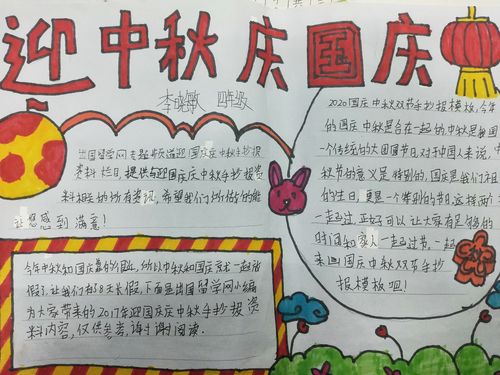 迎中秋庆国庆
李晓敏 四年级
出国留学网专题频道迎国庆庆中秋手抄报
资料栏目,提供与迎国庆庆中秋手抄报资
料相关的所有资讯,希望我们所做的能
让您感到满意!
今年中秋和国庆靠的很近,所以中秋和国庆京尤一起放
假了,让我们有了8天长假,下面是出国留学网小编
为大家带来的2017年迎国庆庆中秋手抄报资
料内容,仅供参考,谢谢阅读.
2020国庆中秋双节手抄报模板,今年
的国庆中秋是合在一起的,中秋是我国
一个传统的大团圆节日,对于中国人来说,中
秋节的意义是特别的,国庆是我们祖
的生日,更是一个特别的节日,这样两
一起过,正好可以让大家有足够的
时间和家人一起过节,一起
来画国庆中秋双节手抄
报模板吧!